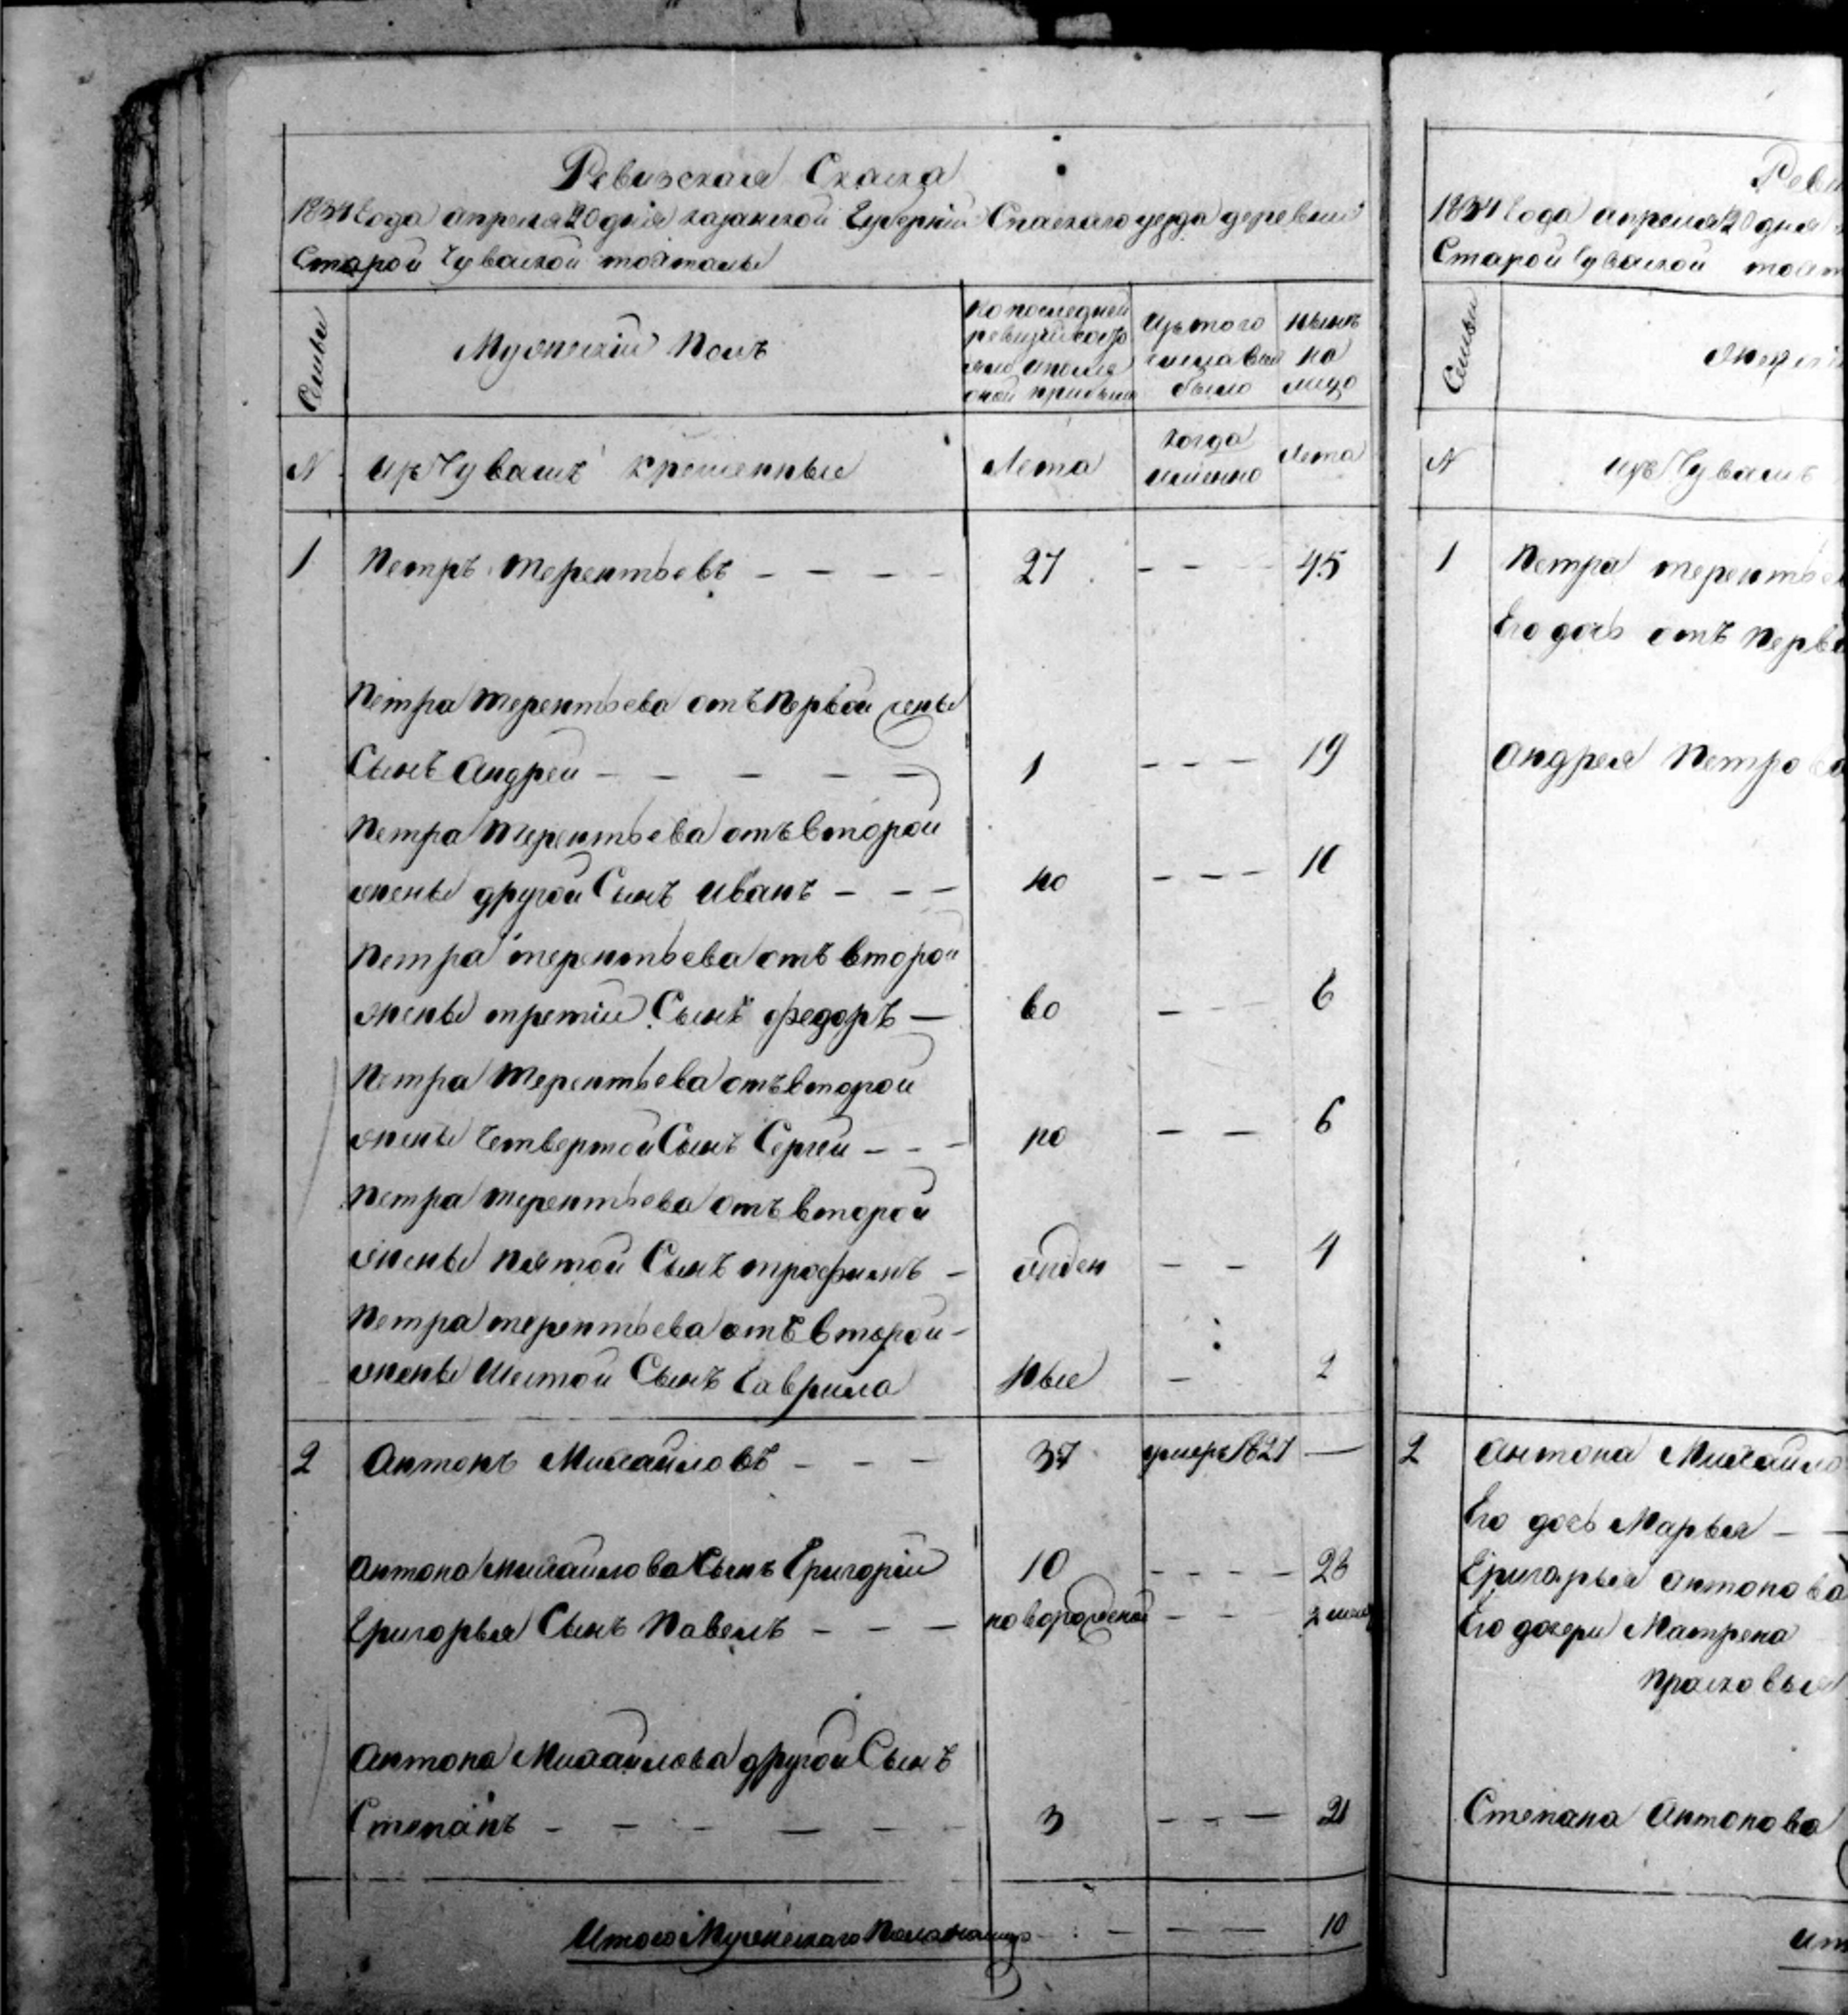 Ревизская Сказка
1834 года апреля 20 дня казанской Губернии Спаскаго уезда деревни
Старой Чувашской толкишь
Семьи
Мужеский Полъ
по последней ревизии состояло и после оной прибыло
Изъ того числа выбыло
ныне на лицо
N
изъ Чувашъ крещенные
Лета
когда именно
Лета
1 Петръ терентьевъ - - - - 27 - - - 45
Петра терентьева отъ первой жены
Сынъ Андрей - - - - - 1 - - - 19
Петра терентьева отъ второй
жены другой Сынъ иванъ - - - но - - - 10
Петра терентьева отъ второй
жены третий Сынъ федоръ — во - - - 6
Петра терентьева отъ второй
жены Четвертой Сынъ Сергей - - - ро - - 6
Петра терентьева отъ второй
жены пятой Сынъ трофимъ - жден - - 4
Петра терентьева отъ второй -
жены Шестой Сынъ Гаврила ные - 2
2 Антонъ Михайловъ - - - 37 умеръ 1827 —
Антона Михайлова Сынъ Григорий 10 - - - - 28
Григорья Сынъ Павелъ - - - новорожденой - - -
Антона Михайлова другой Сынъ
Степанъ - - - - - - 3 - - - 21
Итого Мужескаго Пола налицо - - - 10
1834 года апреля 20 дня
Старой Чувашской
Семьи
N
изъ Чувашъ
1 Петра
Его дочь отъ
Андрея
2 Антона
Его дочь Марья - -
Григорья антонова
Его дочери Матрена
прасковья
Степана Антонова